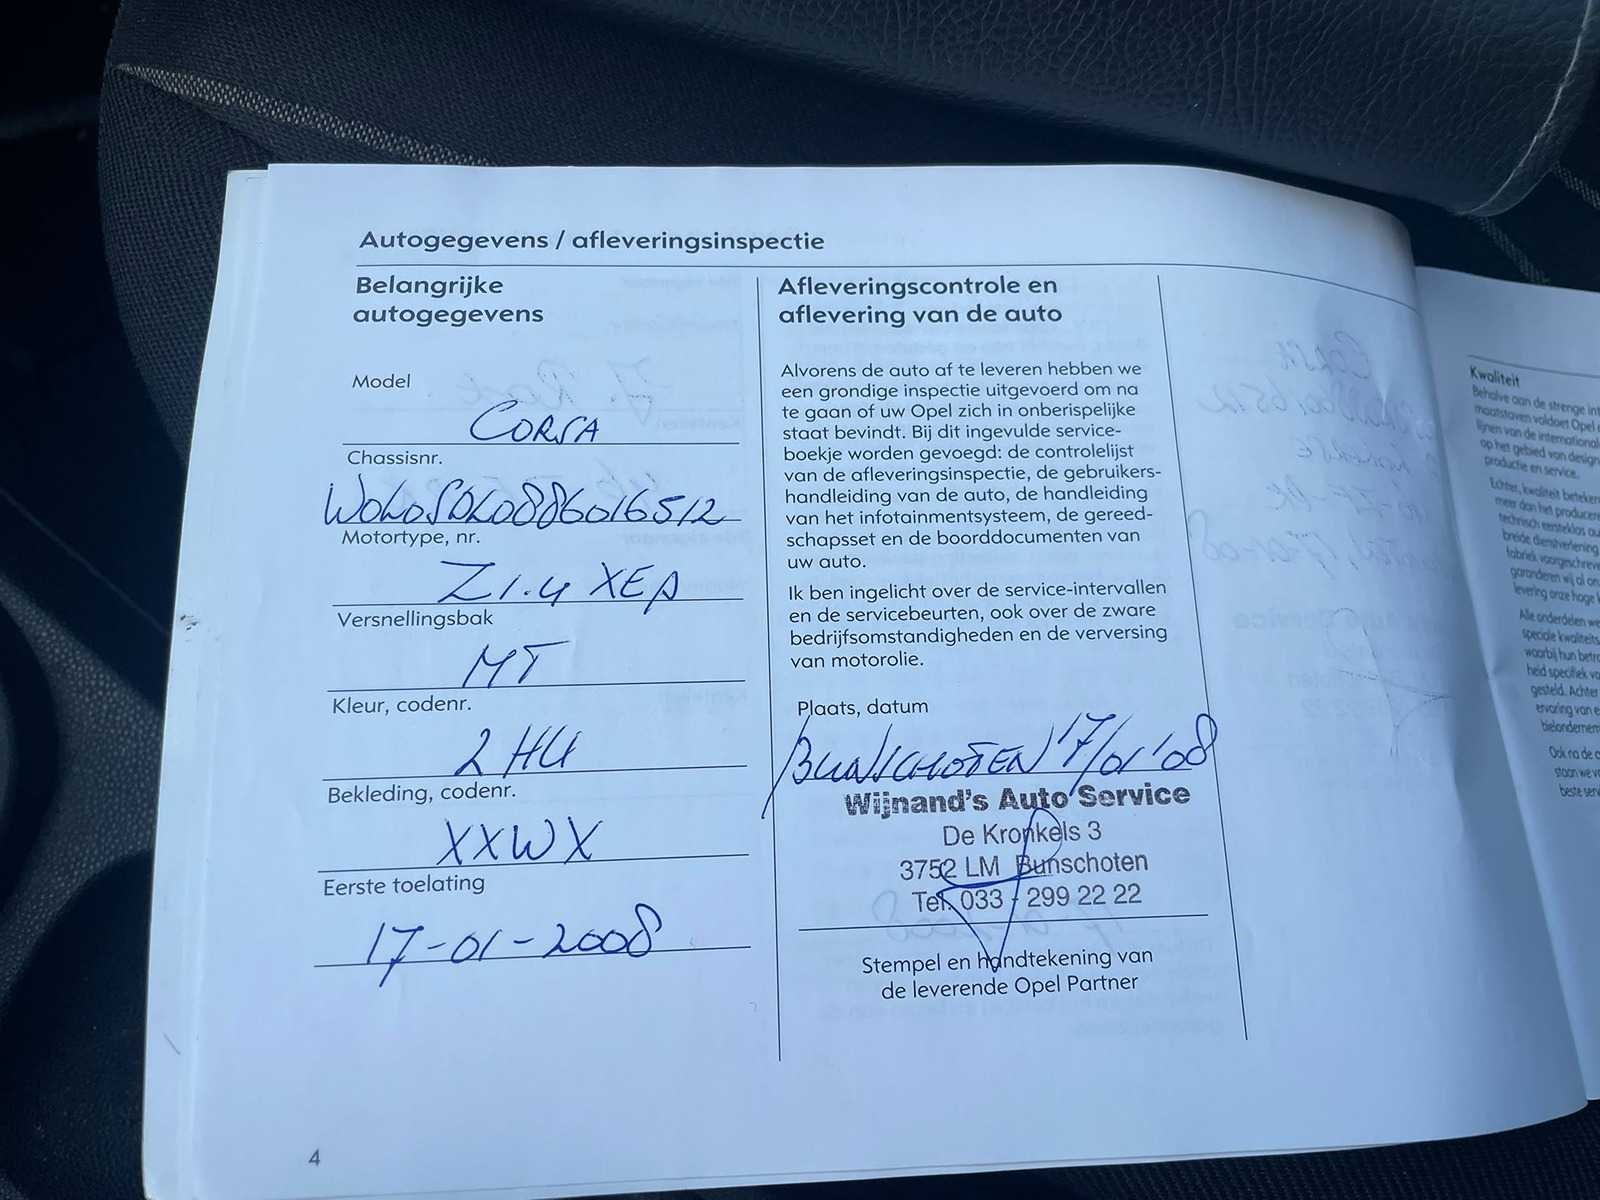 Autogegevens / afleveringsinspectie
Belangrijke
autogegevens
Model
CORSA
Chassisnr.
W0L0SDL0886016512
Motortype, nr.
Z1.4 XEP
Versnellingsbak
MT
Kleur, codenr.
2HU
Bekleding, codenr.
XXWX
Eerste toelating
17-01-2008
4
Afleveringscontrole en
aflevering van de auto
Alvorens de auto af te leveren hebben we
een grondige inspectie uitgevoerd om na
te gaan of uw Opel zich in onberispelijke
staat bevindt. Bij dit ingevulde service-
boekje worden gevoegd: de controlelijst
van de afleveringsinspectie, de gebruikers-
handleiding van de auto, de handleiding
van het infotainmentsysteem, de gereed-
schapsset en de boorddocumenten van
uw auto.
Ik ben ingelicht over de service-intervallen
en de servicebeurten, ook over de zware
bedrijfsomstandigheden en de verversing
van motorolie.
Plaats, datum
BUNSCHOTEN 17/01'08
Wijnand's Auto Service
De Kronkels 3
3752 LM Bunschoten
Tel. 033 - 299 22 22
Stempel en handtekening van
de leverende Opel Partner
Kwaliteit
Behalve aan de strenge
maatstaven voldoet Opel
lijnen van de
op het gebied van design
productie en service.
Echter, kwaliteit
meer dan het
technisch eersteklas
breide dienstverlening
fabriek
garanderen wij al
levering onze hoge
Alle onderdelen
speciale
waarbij hun
heid specifiek
gesteld. Achter
ervaring van
Ook na de
staan we
beste